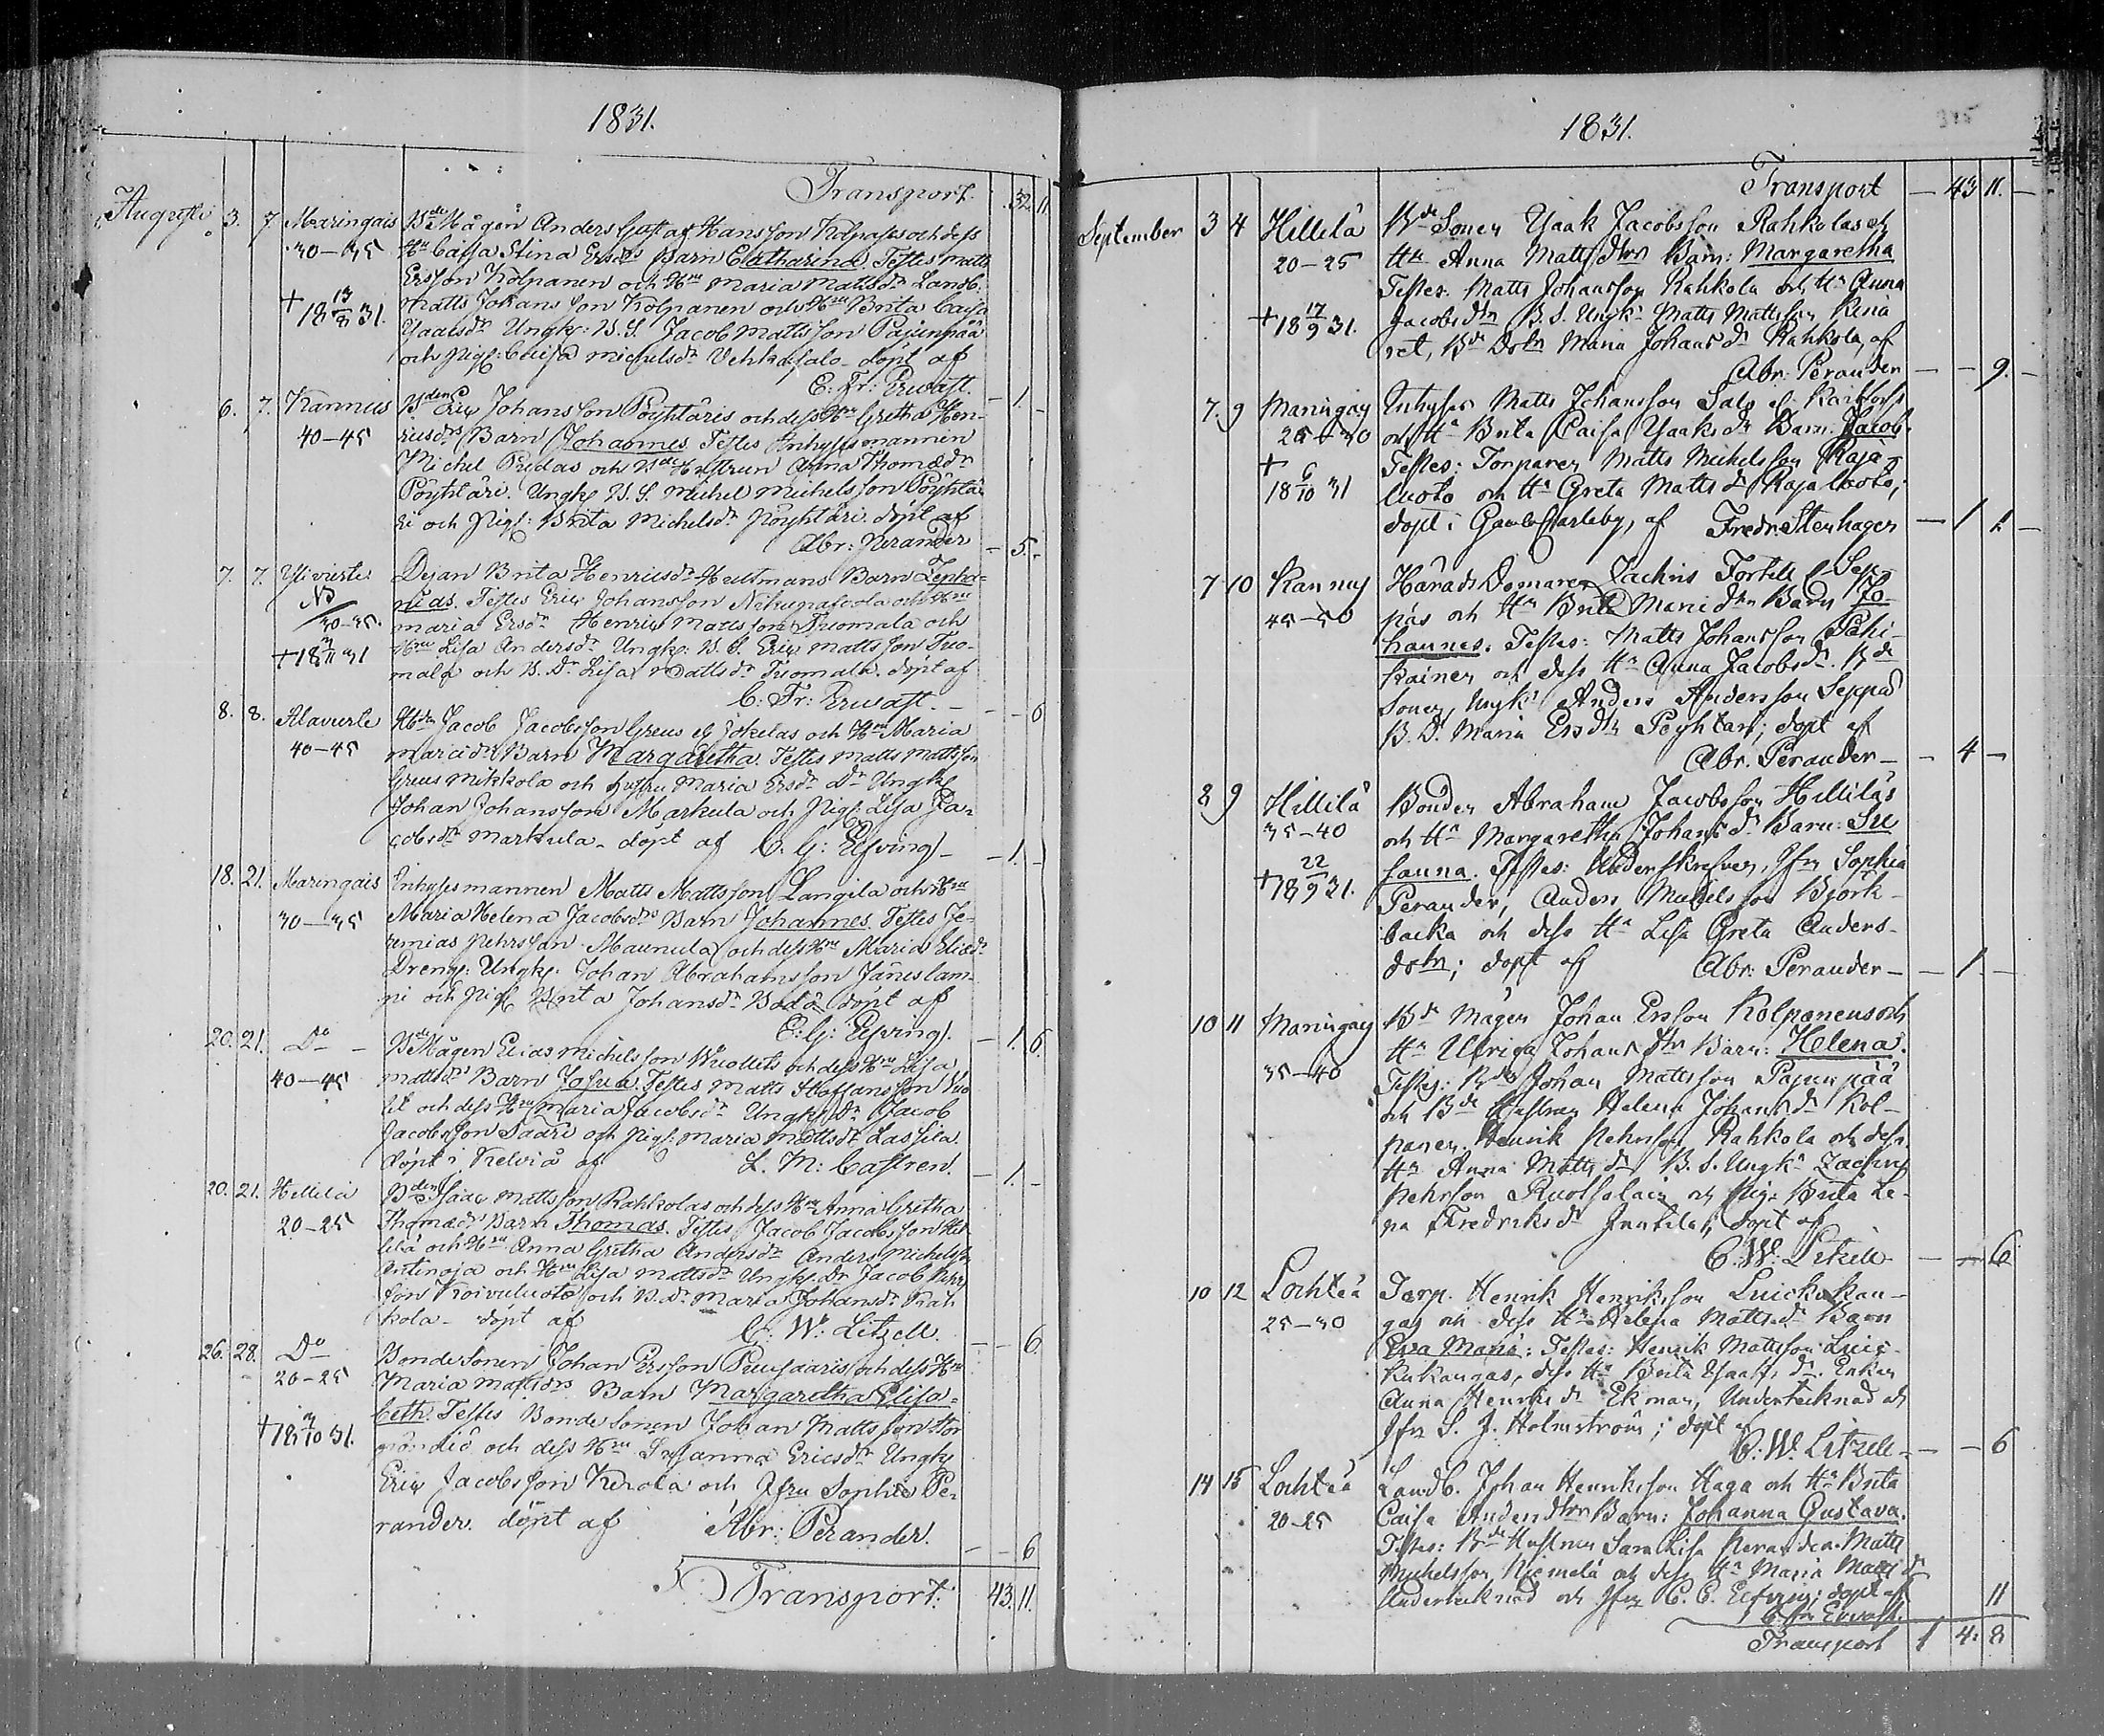 1831.
Transport. 32 11
Augusti 3. 7. Maringais Bde Mågen Anders Gustaf Hansson Kolpanens och dess
30–35 Hu Caisa Stina Ersdrs Barn Catharina. Testes Matts
Ersson Kolpanen och Hu Maria Mattsdr Landb.
+ 18 13/8 31. Matts Johansson Kolpanen och Hu Brita Caisa
Isaksdr Ungk: B.S. Jacob Mattsson Pajunpää
och Pig: Caisa Michelsdr Vehkasalo döpt af
C: Fr: Erwast. – 1. –
6. 7. Kannus Bden Eric Johansson Pöyhtäris och dess Hu Gretha Hen-
40–45 ricsdrs Barn Johannes Testes Inhysesmannen
Michel Prudas och Bde Hustrun Anna Thomædr
Pöyhtäri. Ungk B.S. Michel Michelsson Pöyhtä-
ri och Pig: Brita Michelsdr Pöyhtäri. döpt af
Abr: Perander – 5. –
7. 7. Ylivieska Dejan Brita Henricsdr Hultmans Barn Zepha-
No nias. Testes Eric Johansson och Hu
30–35. Maria Ersdr Henric Mattsson Tuomala och
+ 18 3/11 31 Hu Lisa Andersdr Ungk: B.S. Eric Mattsson Tuo-
mala och B. Dr Lisa Mattsdr Tuomala. döpt af
C: Fr: Erwast. – – 6
8. 8. Alavirte Bden Jacob Jacobsson Greus el Jokelas och Hu Maria
40–45 Marcidrs Barn Margaretha. Testes Matts Mattsson
Greus Mikkola och hustru Maria Ersdr Dr Ungk
Johan Johansson Markula och Pig: Lisa Ja-
cobsdr Markula – döpt af C. G: Elfving – – 1. –
18. 21. Maringais Inhysesmannen Matts Mattsson Langila och Hu
30–35 Maria Helena Jacobsdrs Barn Johannes. Testes Je-
remias Pehrsson Maunula och dess Hu Maria Eliædr
Dreng: Ungk: Johan Abrahamsson Jäneslam-
pi och Pig Brita Johansdr Bodö döpt af
C: G: Elfving. – 1. 6.
20. 21. Do – Bde Mågen Elias Michelsson Wuollets och dess Hu Lisa
40–45 Mattsdrs Barn Josua. Testes Matts Staffansson Vuo-
let och dess Hu Maria Jacobsdr Ungk: Dr Jacob
Jacobsson Saari och Pig: Maria Mattsdr Lassila.
döpt i Kelviå af L. M: Castren. – 1. –
20. 21. Hillilä Bden Isac Mattsson Rahkolas och dess Hu Anna Gretha
20–25 Thomædrs Barn Thomas. Testes Jacob Jacobsson Hil-
lilä och Hu Anna Gretha Andersdr Anders Michelsson
Antinoja och Hu Lisa Mattsdr Ungk: Dr Jacob Pehrs-
son Koivuluoto och B. Dr Maria Johansdr Rah-
kola – döpt af C: W: Litzell. – – 6
26. 28. Do Bondesonen Johan Ersson Peusaaris och dess Hu
20–25 Maria Mattsdrs Barn Margaretha Elisa-
beth. Testes Bondesonen Johan Mattsson
+ 18 3/10 31. och dess Hu Susanna Ericsdr Ungk
Eric Jacobsson Kerola och Jfru Sophia Pe-
rander. döpt af Abr: Perander. – – 6
Transport: 43. 11.
1831.
Transport – 43 11. –
September 3 4 Hillilä Bde Sonen Isaak Jacobsson Rahkolas och
20–25 Hu Anna Mattsdtrs Barn: Margaretha
Testes. Matts Johansson Rahkola och Hu Anna
+ 18 17/9 31. Jacobsdtr B.S. Ungk: Matts Mattsson
ret, Bde Dotr Maria Johansdr Rahkola, af
Abr. Perander – – 9. –
7. 9 Maringais Inhyses Matts Johansson Salo el. Karlfors
25–30 och Hu Brita Caisa Isaksdr Barn: Jacob.
+ Testes: Torparen Matts Michelsson Raja-
18 6/10 31 luoto och Hu Greta Mattsdr Rajaluoto,
döpt i Gamlcarleby, af Fredr. Stenhagen – 1 1. –
7 10 Kannus HäradsDomaren Zachris Tortell el Sep-
45–50 päs och Hu Brita Marcidtrs Barn Jo-
hannes. Testes: Matts Johansson Pahi-
kainen och dess Hu Anna Jacobsdr. Bde
Sonen, Ungk: Anders Andersson Seppä
B. D. Maria Ersdtr Pöyhtäri; döpt af
Abr. Perander – – 4 –
8 9 Hillilä Bonden Abraham Jacobsson Hilliläs
35–40 och Hu Margaretha Johansdr Barn: Su
+ 18 22/9 31. sanna. Testes: Underskrefven, Jfru Sophia
Perander, Anders Michelsson Björk-
backa och dess Hu Lisa Greta Anders-
dotr; döpt af Abr: Perander – – 1. –
10 11 Maringais Bde Mågen Johan Ersson Kolpanens och
35–40 Hu Ulrica Johansdtrs Barn: Helena.
Testes: Bde Johan Mattsson Pajunpää
och Bde Hustrun Helena Johansdr Kol-
panen, Henrik Pehrsson Rahkola och dess
Hu Anna Mattsdr B. S. Ungk: Zachris
Pehrsson Ruotsalain och Pig: Brita Le-
na Fredriksdr Junkila; döpt af
C. W. Litzell – – 6
10 12 Lochteå Torp. Henrik Henriksson Luickukan-
25–30 gas och dess Hu Helena Mattsdr Barn
Eva Maria: Testes: Henrik Mattsson Luic-
kukangas, dess Hu Brita Isaaks dr. Enkan
Anna Henriksdr Ekman, Undertecknad och
Jfru S. J. Holmström; döpt af
C. W. Litzell – – – 6
14 15 Lochteå Landb. Johan Henriksson Haga och Hu Brita
20–25 Caisa Andersdtrs Barn: Johanna Gustava.
Testes: Bde Hustrun Sara Lisa Perander. Matts
Michelsson Niemelä och dess Hu Maria Mattsdr
Undertecknad och Jfru C. E. Elfving; döpt af 11
C. Fr. Erwast.
Transport 1 4: 8